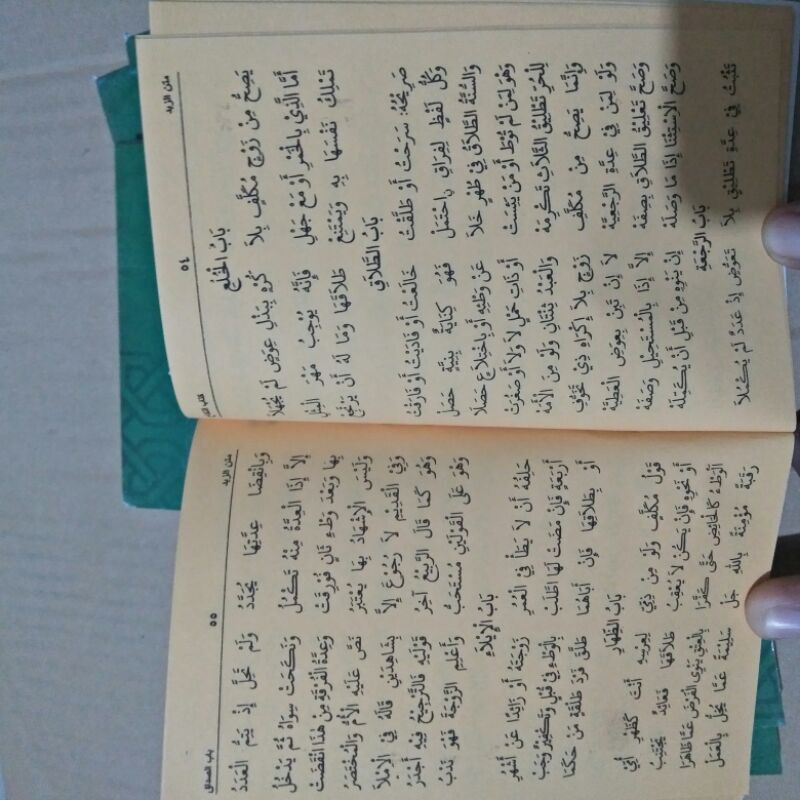 متن الزبد ٥٤
بَابُ الْخُلْعِ
يَصِحُّ مِنْ زَوْجٍ مُكَلَّفٍ بِلَا كُرْهٍ بِبَذْلِ عِوَضٍ لَمْ يُجْهَلَا
أَمَّا الَّذِي بِالْخَمْرِ أَوْ مَعْ جَهْلِ فَإِنَّهُ يُوجِبُ مَهْرَ الْمِثْلِ
تَمْلِكُ نَفْسَهَا بِهِ وَيَمْتَنِعْ طَلَاقُهَا وَمَا لَهُ أَنْ يَرْتَجِعْ
بَابُ الطَّلَاقِ
صَرِيحُهُ: سَرَّحْتُ أَوْ طَلَّقْتُ خَالَعْتُ أَوْ فَادَيْتُ أَوْ فَارَقْتُ
وَكُلُّ لَفْظٍ لِفِرَاقٍ احْتَمَلْ فَهُوَ كِنَايَةٌ بِنِيَّةٍ حَصَلْ
وَالسُّنَّةُ الطَّلَاقُ فِي طُهْرٍ خَلَا عَنْ وَطْئِهِ أَوْ بِاخْتِلَاعٍ حَصَلَا
وَهُوَ لِمَنْ لَمْ تُوطَ أَوْ مَنْ يَئِسَتْ أَوْ ذَاتِ حَمْلٍ لَا وَلَا أَوْ صَغُرَتْ
لِلْحُرِّ تَطْلِيقُ الثَّلَاثِ تَكْرِمَهْ وَالْعَبْدُ ثِنْتَانِ وَلَوْ مِنَ الْأَمَهْ
وَإِنَّمَا يَصِحُّ مِنْ مُكَلَّفِ زَوْجٍ بِلَا إِكْرَاهِ ذِي تَخَوُّفِ
وَلَوْ لِمَنْ فِي عِدَّةِ الرَّجْعِيَّهْ لَا إِنْ تَبِنْ بِعِوَضِ الْعَطِيَّهْ
وَصَحَّ تَعْلِيقُ الطَّلَاقِ بِصِفَهْ إِلَّا إِذَا بِالْمُسْتَحِيلِ وَصَفَهْ
وَصَحَّ الِاسْتِثْنَا إِذَا مَا وَصَلَهْ إِنْ يَنْوِهِ مِنْ قَبْلِ أَنْ يُكَمِّلَهْ
بَابُ الرَّجْعَةِ
تَثْبُتُ فِي عِدَّةِ تَطْلِيقٍ بِلَا تَعَوُّضٍ إِذْ عَدَدٌ لَمْ يُكْمَلَا
متن الزبد ٥٥ باب الصداق
وَبِانْقِضَا عِدَّتِهَا يُجَدَّدُ وَلَمْ تَحِلَّ إِذْ يَتِمُّ الْعَدَدُ
إِلَّا إِذَا الْعِدَّةُ مِنْهُ تَكْمُلُ وَنَكَحَتْ سِوَاهُ ثُمَّ يَدْخُلُ
بِهَا وَبَعْدَ وَطْءِ ثَانٍ فُورِقَتْ وَعِدَّةُ الْفُرْقَةِ مِنْ هَذَا انْقَضَتْ
وَلَيْسَ الْإِشْهَادُ بِهَا يُعْتَبَرُ نَصَّ عَلَيْهِ الْأُمُّ وَالْمُخْتَصَرُ
وَفِي الْقَدِيمِ لَا رُجُوعَ إِلَّا بِشَاهِدَيْنِ قَالَهُ فِي الْإِمْلَا
وَهُوَ كَمَا قَالَ الرَّبِيعُ آخِرُ قَوْلَيْهِ فَالتَّرْجِيحُ فِيهِ أَجْدَرُ
وَهُوَ عَلَى الْقَوْلَيْنِ مُسْتَحَبُّ وَأَعْلِمِ الزَّوْجَةَ فَهْوَ نَدْبُ
بَابُ الْإِيلَاءِ
حَلِفُهُ أَنْ لَا يَطَأْ فِي الْعُمْرِ زَوْجَتَهُ أَوْ زَائِدًا عَنْ أَشْهُرِ
أَرْبَعَةٍ فَإِنْ مَضَتْ لَهَا الطَّلَبْ بِالْوَطْءِ فِي قُبْلٍ وَتَكْفِيرٌ وَجَبْ
أَوْ بِطَلَاقِهَا فَإِنْ أَبَاهُمَا طَلَّقَ فَرْدَ طَلْقَةٍ مَنْ حَكَمَا
بَابُ الظِّهَارِ
قَوْلُ مُكَلَّفٍ وَلَوْ مِنْ ذِمِّي لِعِرْسِهِ أَنْتِ كَظَهْرِ أُمِّي
أَوْ نَحْوِهِ فَإِنْ يَكُنْ لَا يُعْقِبُ طَلَاقَهَا فَعَائِدٌ يَجْتَنِبُ
الْوَطْءَ كَالْحَائِضِ حَتَّى كَفَّرَا بِالْعِتْقِ يَنْوِي الْفَرْضَ عَمَّا ظَاهَرَا
رَقَبَةً مُؤْمِنَةً بِاللهِ جَلّْ سَلِيمَةً عَمَّا يُخِلُّ بِالْعَمَلْ